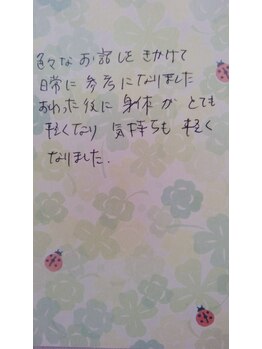 色々なお話しをきかけて
日常に参考になりました
おわった後に身体がとても
軽くなり 気持ちも軽く
なりました.